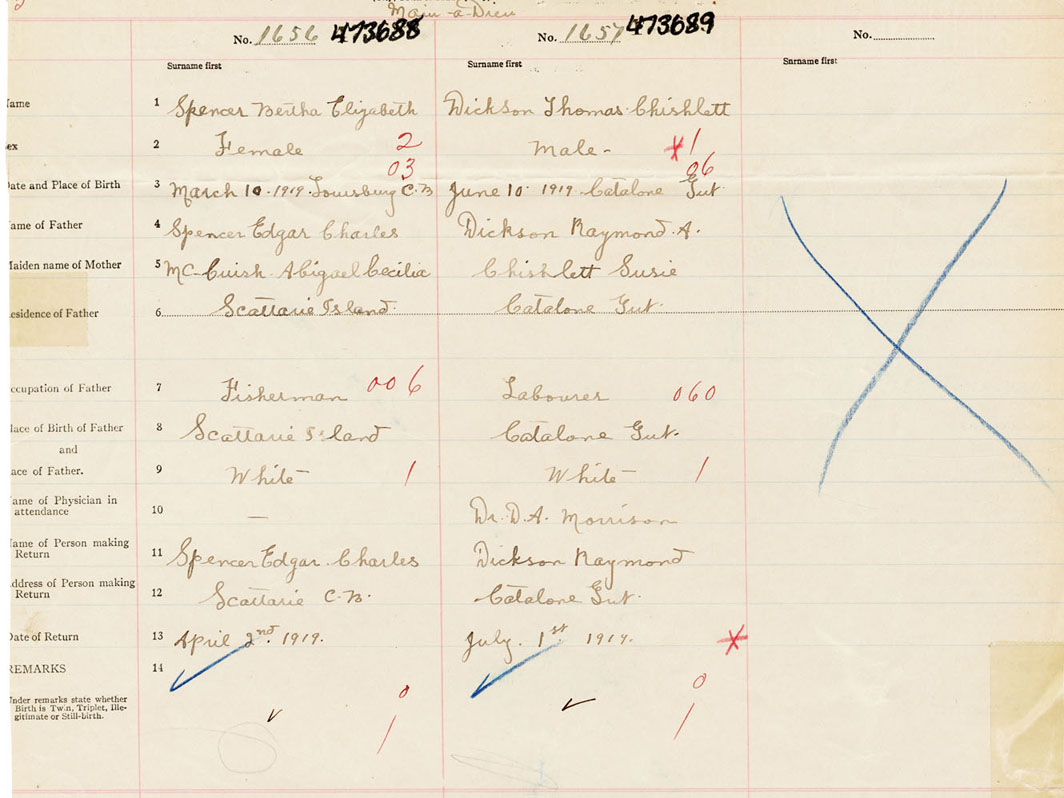 Main-a-Dieu
No. 1656 473688 No. 1657 473689 No.
Surname first Surname first Surname first
ame 1 Spencer Bertha Elizabeth Dickson Thomas Chishlett
ex 2 Female 2 Male - x 1
03 06
ate and Place of Birth 3 March 10 · 1919 · Louisburg C.B June 10 · 1919 · Catalone Gut
ame of Father 4 Spencer Edgar Charles Dickson Raymond. A.
aiden name of Mother 5 Mc-Cuish Abigael Cecilia Chishlett Susie
esidence of Father 6 Scattarie Island. Catalone Gut
ccupation of Father 7 Fisherman 006 Labourer 060
lace of Birth of Father 8 Scattarie Island Catalone Gut.
and
ace of Father. 9 White 1 White 1
ame of Physician in
attendance 10 — Dr. D.A. Morrison
ame of Person making
Return 11 Spencer Edgar. Charles Dickson Raymond
ddress of Person making
Return 12 Scattarie C.B. Catalone Gut.
ate of Return 13 April 2nd. 1919. July. 1st 1919.
REMARKS 14
nder remarks state whether
Birth is Twin, Triplet, Ille-
gitimate or Still-birth.
0 0
1 1